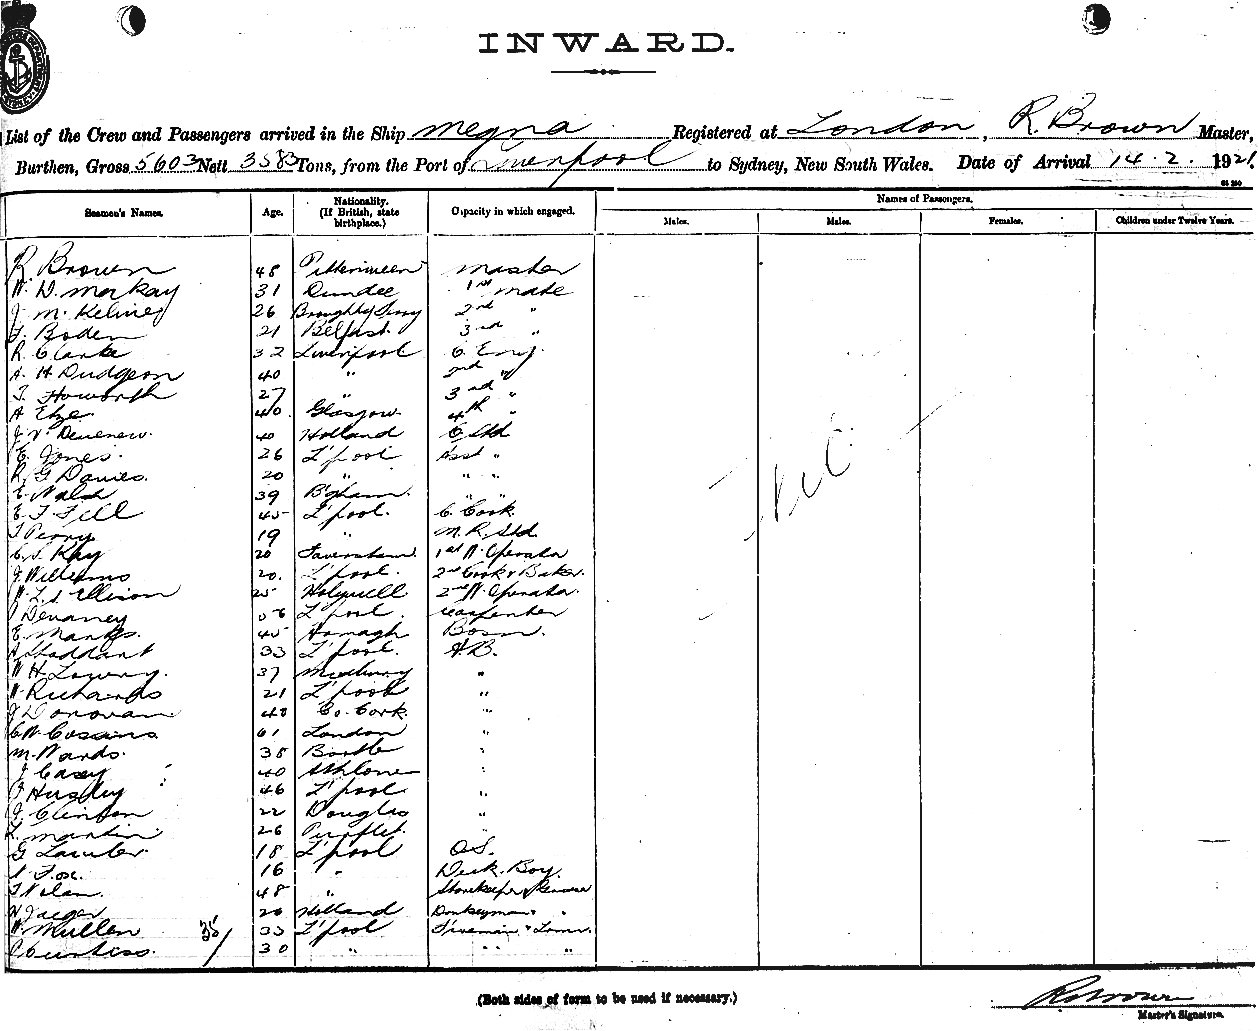 INWARD.
List of the Crew and Passengers arrived in the Ship Megna Registered at London, R. Brown Master,
Burthen, Gross 5603 Nett 3583 Tons, from the Port of Liverpool to Sydney, New South Wales. Date of Arrival 14.2.1921
Seamen's Names. Age. Nationality. (If British, state birthplace.) Capacity in which engaged. Names of Passengers.
Males. Males. Females. Children under Twelve Years.
R. Brown 48 Master
W. D. Mackay 31 Dundee 1st Mate
26 2nd "
Boden 21 Belfast 3rd "
R Clarke 32 Liverpool C Eng.
A. H. Dudgeon 40 " 2nd "
T. Howorth 27 " 3rd "
A 40 Glasgow. 4th "
40 Holland C Std
E. Jones. 26 L'pool Asst "
R. G Davies. 20 " " "
E. Walsh 39 B'gham. " "
E. T. Fell 45 L'pool. C. Cook
T Perry 19 " M. R. Std
Kay 20 Faversham. 1st W. Operator
J Williams 20. L'pool. 2nd Cook & Baker.
Ellison 25 Holywell 2nd W. Operator
Devaney 56 L'pool. Carpenter
E. Manks. 45 Armagh Bosun.
A Stoddart 33 L'pool. A.B.
W H Lowry. 37 "
W Richards 21 L'pool "
J Donovan 48 Co. Cork "
C W Cossins 61 London "
M. Wards. 38 Bootle "
J Casey 40 Athlone "
46 L'pool "
J. Clinton 22 Douglas "
L. Martin 26 Purfleet. "
G 18 L'pool O.S.
Fox. 16 " Deck Boy.
T Nolan. 48 " Storekeeper &
Jaeger 20 Holland Donkeyman "
W. Mullen 35/ 33 L'pool Fireman &
Curtiss. 30 " " "
Nil
(Both sides of form to be used if necessary.)
R Brown
Master's Signature.